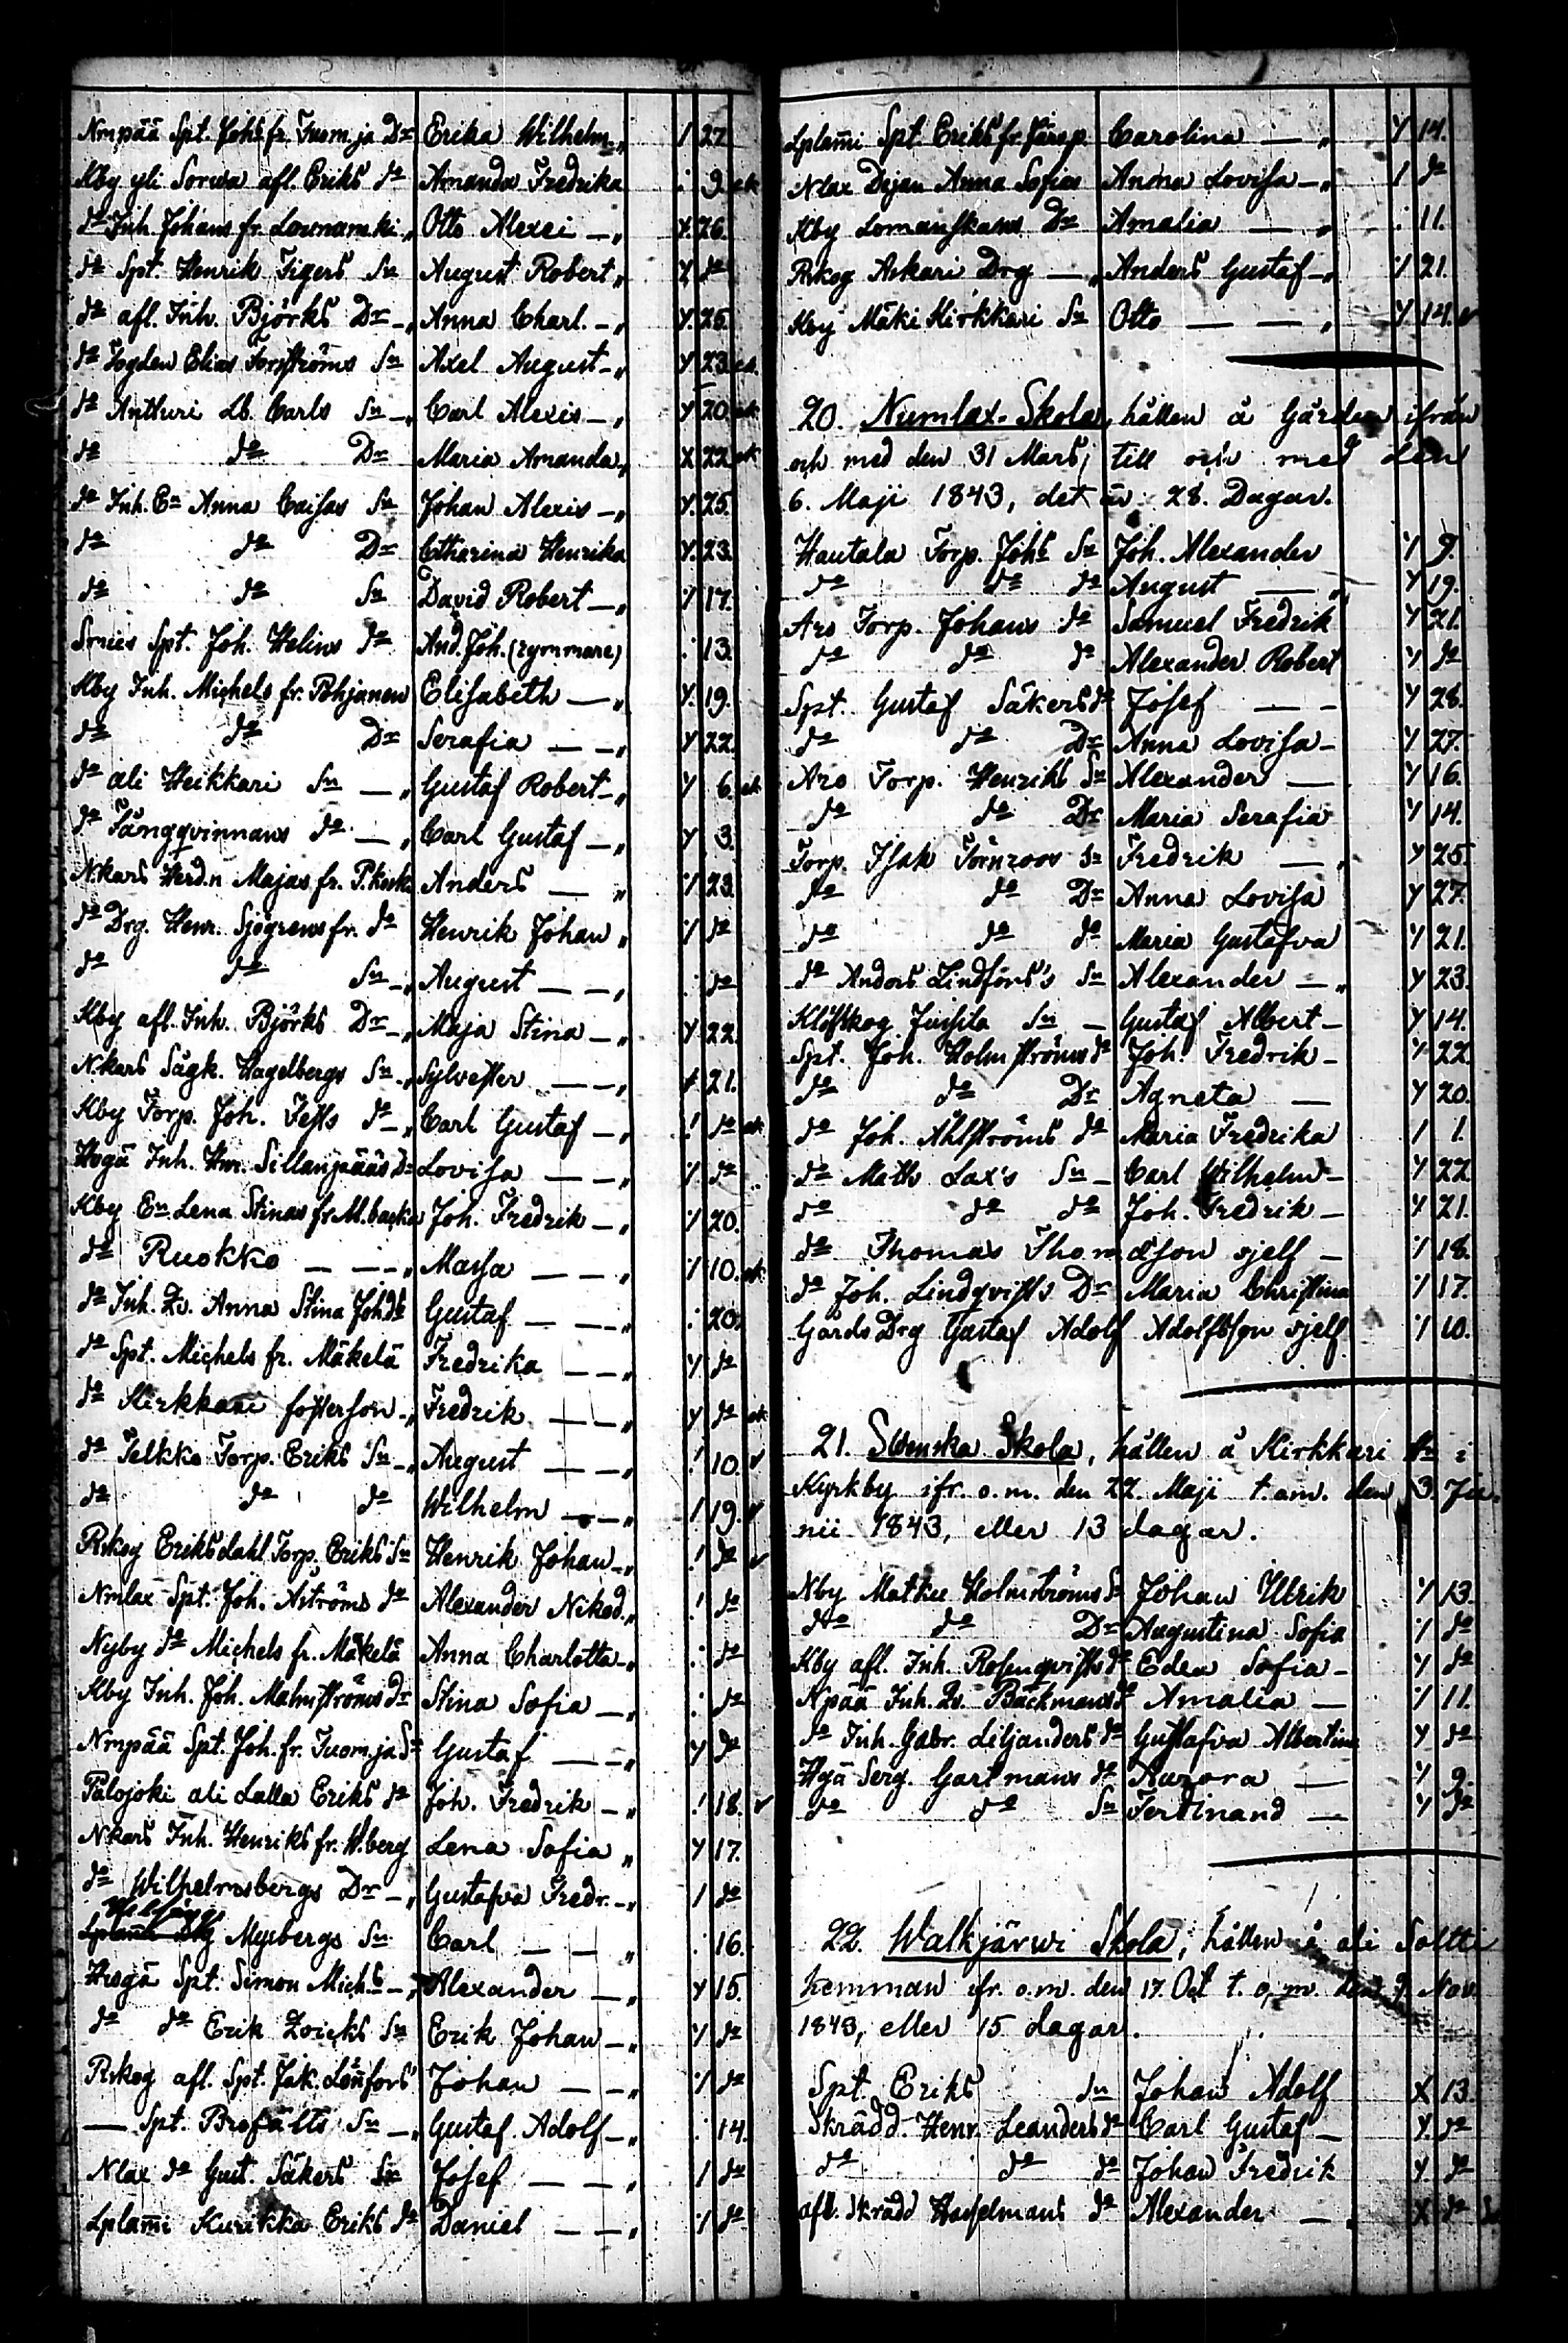 Nmpää Spt. Johs fr. Tuom.ja Dr Erika Wilhelm. „ / 27.
Kby yli Sorwa afl. Eriks do Amanda Fredrika ⁒ 9. ek
do Inh. Johans fr. Lounamki „ Otto Alexei — „ Y. 26.
do Spt. Henrik Tigers Sn August Robert „ X do
do afl. Inh. Björks Dr — „ Anna Charl. — „ Y. 25.
do Fogden Elias Forsströms Sn Axel August — „ Y 23. ek.
do Anthuri Lb. Carls Sn — „ Carl Alexis — „ Y 20. ek
do do Dr Maria Amanda „ X 22. ek
do Inh. En Anna Caisas Sn Johan Alexis — „ Y. 25.
do do Dr Catharina Henrika Y. 23.
do do Sn David Robert — „ Y 17.
Smies Spt. Joh. Helins do And. Joh. (rymmare) ⁒ 13.
Kby Inh. Michels fr. Pohjanen Elisabeth — „ Y. 19.
do do Dr Serafia — — „ Y 22.
do ali Heikkari Sn — „ Gustaf Robert — „ Y 6. ek
do Fångqvinnans do — „ Carl Gustaf — „ Y 3.
N.kars Werd.n Majas fr. P.koski Anders — „ Y 23.
do Drg. Henr. Sjögrens fr. do Henrik Johan „ Y do
do do Sn — „ August — — „ ⁒ do
Kby afl. Inh. Björks Dr — „ Maja Stina — „ Y. 22.
N.kars Sågk. Hagelbergs Sn „ Sylvester — — „ Y 21.
Kby Torp. Joh. Tests do — „ Carl Gustaf — „ / do ek
Hogä Inh. Hnr. Sillanpääs Dr Lovisa — — „ Y do
Kby En Lena Stinas fr M.backa Joh. Fredrik — „ Y 20.
do Ruokko — — „ Massa — — „ Y 10. ek
do Inh. Anna Stina Johds Gustaf — — „ ⁒ 20.
do Spt. Michels fr. Mäkelä Fredrika — — „ Y do
do Kirkkari fosterson — „ Fredrik — — „ Y do ek
do Pelkko Torp. Eriks Sn — „ August — — „ / 10. v
do do do Wilhelm — — „ / 19. v
Rskog Eriksdahl Torp. Eriks Sn Henrik Johan — „ / do v
Nmlax Spt. Joh. Åströms do Alexander Nikod. „ / do
Nyby do Michels fr. Mäkelä Anna Charlotta — „ ⁒ do
Kby Inh. Joh. Malmströms Dr Stina Sofia — „ ⁒ do
Nmpää Spt. Joh. fr. Tuom.ja Sn Gustaf — — „ Y do
Palojoki ali Lalla Eriks do Joh. Fredrik — „ / 18. v
N.kars Inh. Henriks fr. W.berg Lena Sofia „ Y 17.
do Wilhelmsbergs Dr — „ Gustafva Fredr. — „ / do
Myrbergs Sn Carl — — „ ⁒ 16.
Hogä Spt. Simon Michs — „ Alexander — „ Y 15.
do do Erik Zwicks Sn Erik Johan — „ Y do
Rskog afl. Spt. Jak. Lönnfors' Johan — — „ Y do
— Spt. Brofälts Sn — „ Gustaf Adolf — „ ⁒ 14.
Nlax do Gust. Säkers Sn Josef — — „ / do
Lplami Kurikka Eriks do Daniel — — „ Y do
Lplami Spt. Eriks fr. Carolina — „ Y 14.
Nlax Dejan Anna Sofias Anna Lovisa — „ / do
Kby Lomanskans Dr Amalia — „ ⁒ 11.
Rskog Askari Drg — „ Anders Gustaf — „ Y 21.
Kby Mäki Kirkkari Sn Otto — — „ Y 14. v
20. Numlax-Skola, hållen å Gården ifrån
och med den 31 Mars, till och med den
6. Maji 1843, det är: 28. Dagar.
Hautala Torp. Johs Sn Joh. Alexander Y 9.
do do do August — „ Y 19.
Aro Torp. Johans do Samuel Fredrik Y 21.
do do do Alexander Robert Y do
Spt. Gustaf Säkers do Josef — — Y 28.
do do Dr Anna Lovisa — Y 27.
Aro Torp. Henriks Sn Alexander — Y 16.
do do Dr Maria Serafia Y 14.
Torp. Isak Törnroos Sn Fredrik — „ Y 25.
do do Dr Anna Lovisa Y 27.
do do do Maria Gustafva Y 21.
do Anders Lindfors's Sn Alexander — „ Y 23.
Klöfskog Jussila Sn — Gustaf Albert — Y 14.
Spt. Joh. Holmströms do Joh. Fredrik — Y 22.
do do Dr Agneta — Y 20.
do Joh. Ahlströms do Maria Fredrika / 1.
do Matts Lax's Sn — Carl Wilhelm — Y 22.
do do do Joh. Fredrik — Y 21.
do Thomas Thomasson sjelf — Y 18.
do Joh. Lindqvists Dr Maria Christina Y 17.
Gårds Drg Gustaf Adolf Adolfsson sjelf Y 10.
21. Svenska Skola, hållen å Kirkkari Hn i
Kyrkby ifr. o.m. den 22. Maji t.o.m. den 3. Ju-
nii 1843, eller 13 dagar.
Nby Mathee Holmströms Sn Johan Ulrik Y 13.
do do Dr Augustina Sofia / do
Kby afl. Inh. Rosenqvists do Edea Sofia — Y do
Npää Inh. Bäckmans do Amalia — Y 11.
do Inh. Gabr. Liljanders do Gustafva Albertina Y do
Hgä Serg. Gartmans do Aurora — Y 9.
do do Sn Ferdinand — Y do
22. Walkjärwi Skola, hållen å ali Soltti
hemman ifr. o.m. den 17. Oct t. o. m. den 9. Nov.
1843, eller 15 dagar.
Spt. Eriks Sn Johan Adolf X 13.
Skrädd. Henr. Leanders do Carl Gustaf — Y. do
do do do Johan Fredrik Y. do
afl. Skrädd Hasselmans do Alexander — X do